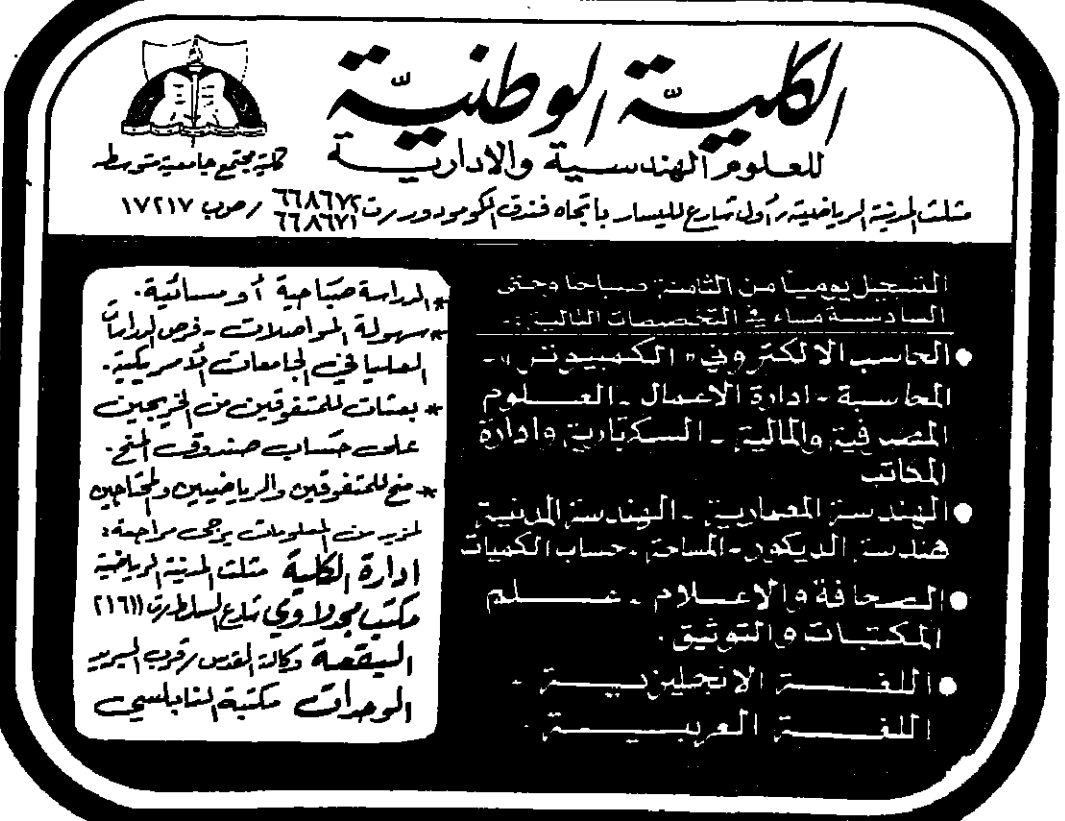 الكلية الوطنية
للعلوم الهندسية والادارية
كلية مجتمع جامعية متوسطة
مثلث المدينة الرياضية / أول شارع لليسار باتجاه فندق الكومودور ت ٦٦٨٦٧٢ / ص.ب ١٧٢١٧
٦٦٨٦٧١
التسجيل يومياً من الثامنة صباحا وحتى
السادسة مساء في التخصصات التالية :-
● الحاسب الالكتروني «الكمبيوتر» -
المحاسبة - ادارة الاعمال - العلوم
المصرفية والمالية - السكرتارية وادارة
المكاتب
● الهندسة المعمارية - الهندسة المدنية
هندسة الديكور - المساحة - حساب الكميات
● الصحافة والإعلام - علم
المكتبات والتوثيق .
● اللغة الانجليزية -
اللغة العربية .
* الدراسة صباحية أو مسائية .
* سهولة المواصلات - فرص الدراسات
العليا في الجامعات الأمريكية .
* بعثات للمتفوقين من الخريجين
على حساب صندوق المنح .
* منح للمتفوقين والرياضيين والمحتاجين
لمزيد من المعلومات يرجى مراجعة :
ادارة الكلية مثلث المدينة الرياضية
مكتب مجدلاوي شارع السلط ت ٢١٦١١
البقعة وكالة القدس / قرب البريد
الوحدات مكتبة النابلسي